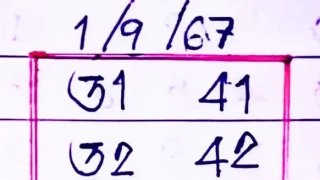 1/9/67
31 41
32 42